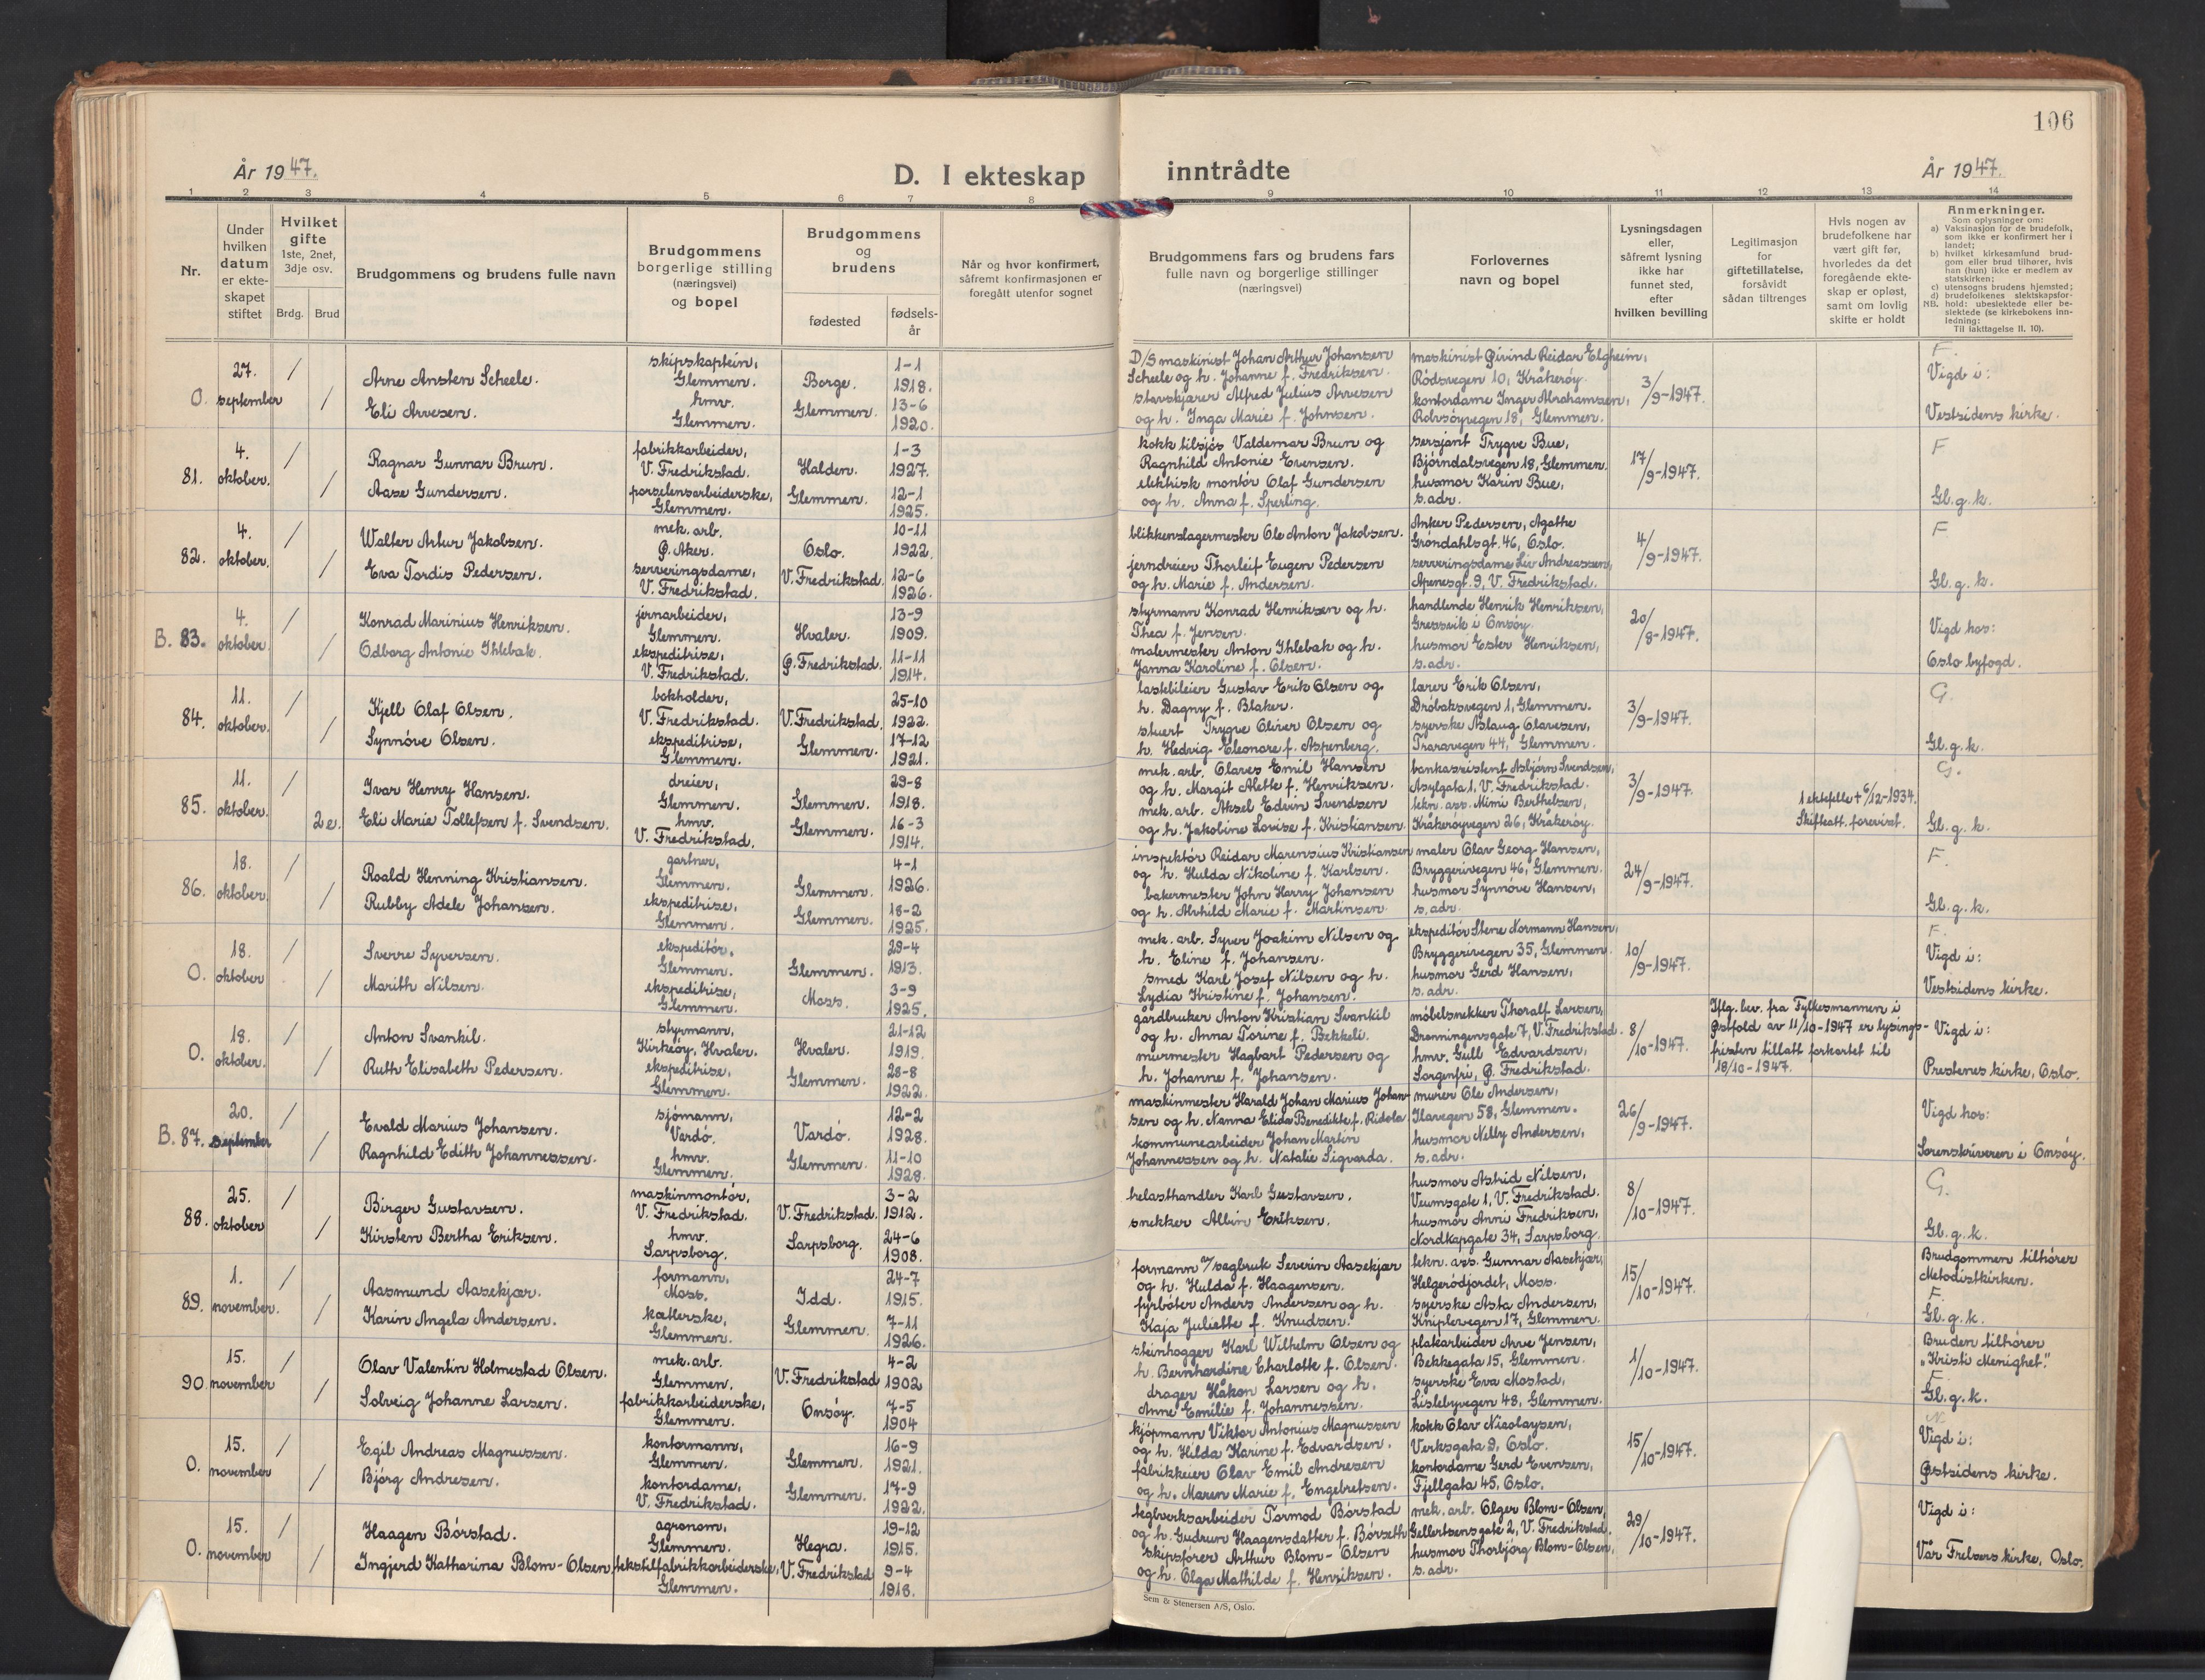 106
År 1947.
D. I ekteskap inntrådte
År 1947.
1 2 3 4 5 6 7 8 9 10 11 12 13 14
Nr.
Under hvilken datum er ekteskapet stiftet
Hvilket gifte 1ste, 2net, 3dje osv.
Brdg. Brud
Brudgommens og brudens fulle navn
Brudgommens borgerlige stilling (næringsvei) og bopel
Brudgommens og brudens
fødested
fødselsår
Når og hvor konfirmert, såfremt konfirmasjonen er foregått utenfor sognet
Brudgommens fars og brudens fars fulle navn og borgerlige stillinger (næringsvei)
Forlovernes navn og bopel
Lysningsdagen eller, såfremt lysning ikke har funnet sted, efter hvilken bevilling
Legitimasjon for giftetillatelse, forsåvidt sådan tiltrenges
Hvis nogen av brudefolkene har vært gift før, hvorledes da det foregående ekteskap er opløst, samt om lovlig skifte er holdt
Anmerkninger.
Som oplysninger om:
a) Vaksinasjon for de brudefolk, som ikke er konfirmert her i landet;
b) hvilket kirkesamfund brudgom eller brud tilhører, hvis han (hun) ikke er medlem av statskirken;
c) utensogns brudens hjemsted;
d) brudefolkenes slektskapsforhold: ubeslektede eller beslektede (se kirkebokens innledning:
NB.
Til iakttagelse II. 10).
0. 27. september / /
Arne Ansten Scheele.
Eli Arvesen.
skipskaptein, Glemmen.
hmv. Glemmen.
Borge. 1-1 1918.
Glemmen. 13-6 1920.
D/S maskinist Johan Arthur Johansen
Scheele og h. Johanne f. Fredriksen.
stavskjærer Alfred Julius Arvesen
og h. Inga Marie f. Johnsen.
maskinist Øivind Reidar Elgheim,
Rödsvegen 10, Kråkeröy.
kontordame Inger Abrahamsen,
Rolvsöyvegen 18, Glemmen.
3/9-1947.
F.
Vigd i:
Vestsidens kirke.
81. 4. oktober. / /
Ragnar Gunnar Brun.
Aase Gundersen.
fabrikkarbeider, V. Fredrikstad.
porselensarbeiderske, Glemmen.
Halden. 1-3 1927.
Glemmen. 12-1 1925.
kokk tilsjös Valdemar Brun og
Ragnhild Antonie Evensen.
elektrisk montör Olaf Gundersen
og h. Anna f. Sperling.
sersjant Trygve Bue,
Björndalsvegen 18, Glemmen.
husmor Karin Bue,
s. adr.
17/9-1947.
F
Gl. g. k.
82. 4. oktober. / /
Walter Artur Jakobsen.
Eva Tordis Pedersen.
mek. arb. Ö. Aker.
serveringsdame, V. Fredrikstad.
Oslo. 10-11 1922.
V. Fredrikstad. 12-6 1926.
blikkenslagermester Ole Anton Jakobsen.
jerndreier Thorleif Eugen Pedersen
og h. Marie f. Andersen.
Anker Pedersen, Agathe
Gröndahlsgt. 46, Oslo.
serveringsdame Liv Andreassen,
Apenesgt. 9, V. Fredrikstad.
4/9-1947.
F
Gl. g. k.
B. 83. 4. oktober. / /
Konrad Marinius Henriksen.
Odborg Antonie Ihlebak.
jernarbeider, Glemmen.
ekspeditrise, V. Fredrikstad.
Hvaler. 13-9 1909.
Ö. Fredrikstad. 11-11 1914.
styrmann Konrad Henriksen og h.
Thea f. Jensen.
malermester Anton Ihlebak og h.
Janna Karoline f. Olsen.
handlende Henrik Henriksen,
Gressvik i Onsöy.
husmor Ester Henriksen,
s. adr.
20/8-1947.
Vigd hos:
Oslo byfogd.
84. 11. oktober. / /
Kjell Olaf Olsen.
Synnöve Olsen.
bokholder, V. Fredrikstad.
ekspeditrise, Glemmen.
V. Fredrikstad. 25-10 1922.
Glemmen. 17-12 1921.
lastebileier Gustav Erik Olsen og
h. Dagny f. Blaker.
stuert Trygve Oliver Olsen og
h. Hedvig Eleonore f. Aspenberg.
lærer Erik Olsen,
Dröbaksvegen 1, Glemmen.
syerske Aslaug Olavesen,
Traravegen 44, Glemmen.
3/9-1947.
G.
Gl. g. k.
85. 11. oktober. / 2 e.
Ivar Henry Hansen.
Eli Marie Tollefsen f. Svendsen.
dreier, Glemmen.
hmv. V. Fredrikstad.
Glemmen. 29-8 1918.
Glemmen. 16-3 1914.
mek. arb. Olaves Emil Hansen
og h. Margit Alette f. Henriksen.
mek. arb. Aksel Edvin Svendsen
og h. Jakobine Lovise f. Kristiansen.
bankassistent Asbjörn Svendsen,
Asylgata 1, V. Fredrikstad.
tekn. ass. Mimi Berthelsen,
Kråkeröyvegen 26, Kråkeröy.
3/9-1947.
1 ektefelle + 6/12-1934.
Skifteatt. forevist.
G.
Gl. g. k.
86. 18. oktober. / /
Roald Henning Kristiansen.
Rubby Adele Johansen.
gartner, Glemmen.
ekspeditrise, Glemmen.
Glemmen. 4-1 1926.
Glemmen. 18-2 1925.
inspektör Reidar Marensius Kristiansen
og h. Hulda Nikoline f. Karlsen.
bakermester John Harry Johansen
og h. Alvhild Marie f. Martinsen.
maler Olav Georg Hansen,
Bryggerivegen 46, Glemmen.
husmor Synnöve Hansen,
s. adr.
24/9-1947.
F.
Gl. g. k.
0. 18. oktober / /
Sverre Syversen.
Marith Nilsen.
ekspeditör, Glemmen.
ekspeditrise, Glemmen.
Glemmen. 29-4 1913.
Moss. 3-9 1925.
mek. arb. Syver Joakim Nilsen og
h. Eline f. Johansen.
smed Karl Josef Nilsen og h.
Lydia Kristine f. Johansen.
ekspeditör Stene Normann Hansen,
Bryggerivegen 35, Glemmen.
husmor Gerd Hansen,
s. adr.
10/9-1947.
F.
Vigd i:
Vestsidens kirke.
0. 18. oktober. / /
Anton Svankil.
Ruth Elisabeth Pedersen.
styrmann, Kirkeöy, Hvaler.
ekspeditrise, Glemmen.
Hvaler. 21-12 1919.
Glemmen. 28-8 1922.
gårdbruker Anton Kristian Svankil
og h. Anna Torine f. Bekkeli.
murmester Hagbart Pedersen og
h. Johanne f. Johansen.
möbelsnekker Thoralf Larsen,
Dronningensgate 7, V. Fredrikstad.
hmv. Gull Edvardsen,
Sorgenfri, Ö. Fredrikstad.
8/10-1947.
Iflg. bev. fra Fylkesmannen i
Østfold av 11/10-1947 er lysings-
fristen tillatt forkortet til
18/10-1947.
Vigd i:
Prestenes kirke, Oslo.
B. 87. 20. september / /
Evald Marius Johansen.
Ragnhild Edith Johannessen.
sjömann, Vardö.
hmv. Glemmen.
Vardö. 12-2 1928.
Glemmen. 11-10 1928.
maskinmester Harald Johan Marius Johan-
sen og h. Nanna Elida Benedikte f. Ridola
kommunearbeider Johan Martin
Johannessen og h. Natalie Sigvarda.
murer Ole Andersen,
Ilavegen 58, Glemmen.
husmor Nelly Andersen,
s. adr.
26/9-1947.
Vigd hos:
Sorenskriveren i Onsöy.
88. 25. oktober / /
Birger Gustavsen.
Kirsten Bertha Eriksen.
maskinmontör, V. Fredrikstad.
hmv. Sarpsborg.
V. Fredrikstad. 3-2 1912.
Sarpsborg. 24-6 1908.
trelasthandler Karl Gustavsen.
snekker Albin Eriksen.
husmor Astrid Nilsen,
Veumsgate 1, V. Fredrikstad.
husmor Anni Fredriksen,
Nordkapgate 34, Sarpsborg.
8/10-1947.
G.
Gl. g. k.
89. 1. november. / /
Aasmund Aasekjær.
Karin Angela Andersen.
formann, Moss.
kætlerske, Glemmen.
Idd. 24-7 1915.
Glemmen. 7-11 1926.
formann v/sagbruk Severin Aasekjær
og h. Hulda f. Haagensen.
fyrböter Anders Andersen og h.
Kaja Juliette f. Knudsen.
tekn. ass. Gunnar Aasekjær,
Helgerödjordet, Moss.
syerske Asta Andersen,
Kniplevegen 17, Glemmen.
15/10-1947.
Brudgommen tilhörer
Metodistkirken.
F.
Gl. g. k.
90. 15. november / /
Olav Valentin Holmestad Olsen.
Solveig Johanne Larsen.
mek. arb. Glemmen.
fabrikkarbeiderske, Glemmen.
V. Fredrikstad 4-2 1902
Onsöy. 7-5 1904
steinhogger Karl Wilhelm Olsen og
h. Bernhardine Charlotte f. Olsen.
drager Håkon Larsen og h.
Anne Emilie f. Johannessen.
platearbeider Arve Jensen,
Bekkegata 15, Glemmen.
syerske Eva Mostad,
Lislebyvegen 48, Glemmen.
1/10-1947.
Bruden tilhörer
"Kristi Menighet".
F.
Gl. g. k.
0. 15. november / /
Egil Andreas Magnussen.
Björg Andresen.
kontormann, Glemmen.
kontordame, V. Fredrikstad.
Glemmen. 16-9 1921.
Glemmen. 17-9 1922.
kjöpmann Viktor Antonius Magnussen
og h. Hilda Karine f. Edvardsen.
fabrikkeier Olav Emil Andresen
og h. Maren Marie f. Engebretsen.
kokk Olav Nicolaysen,
Verksgata 9, Oslo.
kontordame Gerd Evensen,
Fjellgata 45, Oslo.
15/10-1947.
N.
Vigd i:
Østsidens kirke.
0. 15. november / /
Haagen Börstad.
Ingjerd Katharina Blom-Olsen
agronom, Glemmen.
tekstilfabrikkarbeiderske, Glemmen.
Hegra. 19-12 1915.
V. Fredrikstad 9-4 1918.
teglverksarbeider Tormod Börstad
og h. Gudrun Haagensdatter f. Börseth
skipsförer Arthur Blom-Olsen
og h. Olga Mathilde f. Henriksen.
mek. arb. Olger Blom-Olsen,
Gellertsensgate 2, V. Fredrikstad.
husmor Thorbjörg Blom-Olsen,
s. adr.
29/10-1947.
Vigd i:
Vår Frelsers kirke, Oslo.
Sem & Stenersen A/S, Oslo.